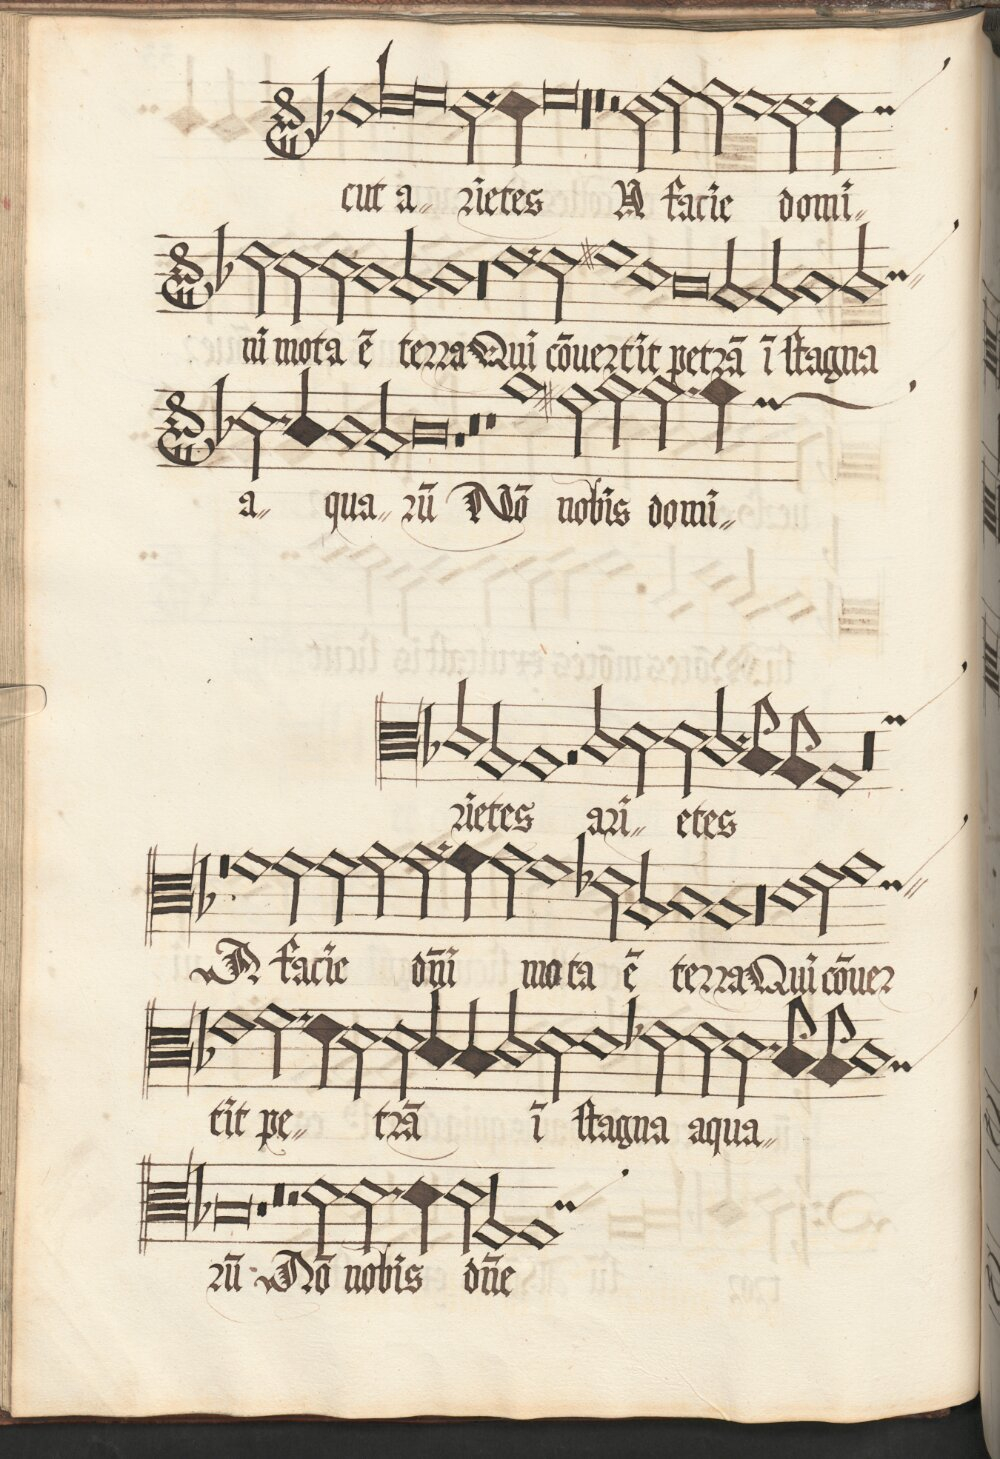 cut a〃 rietes A facie domi〃
ni mota ē terra Qui cōvertit petrā ī stagna
a〃 qua〃 rū Nō nobis domi〃
rietes ari〃 etes
A facie dn̄i mota ē terra Qui cōver
tit pe〃 trā ī stagna aqua〃
rū Nō nobis dn̄e